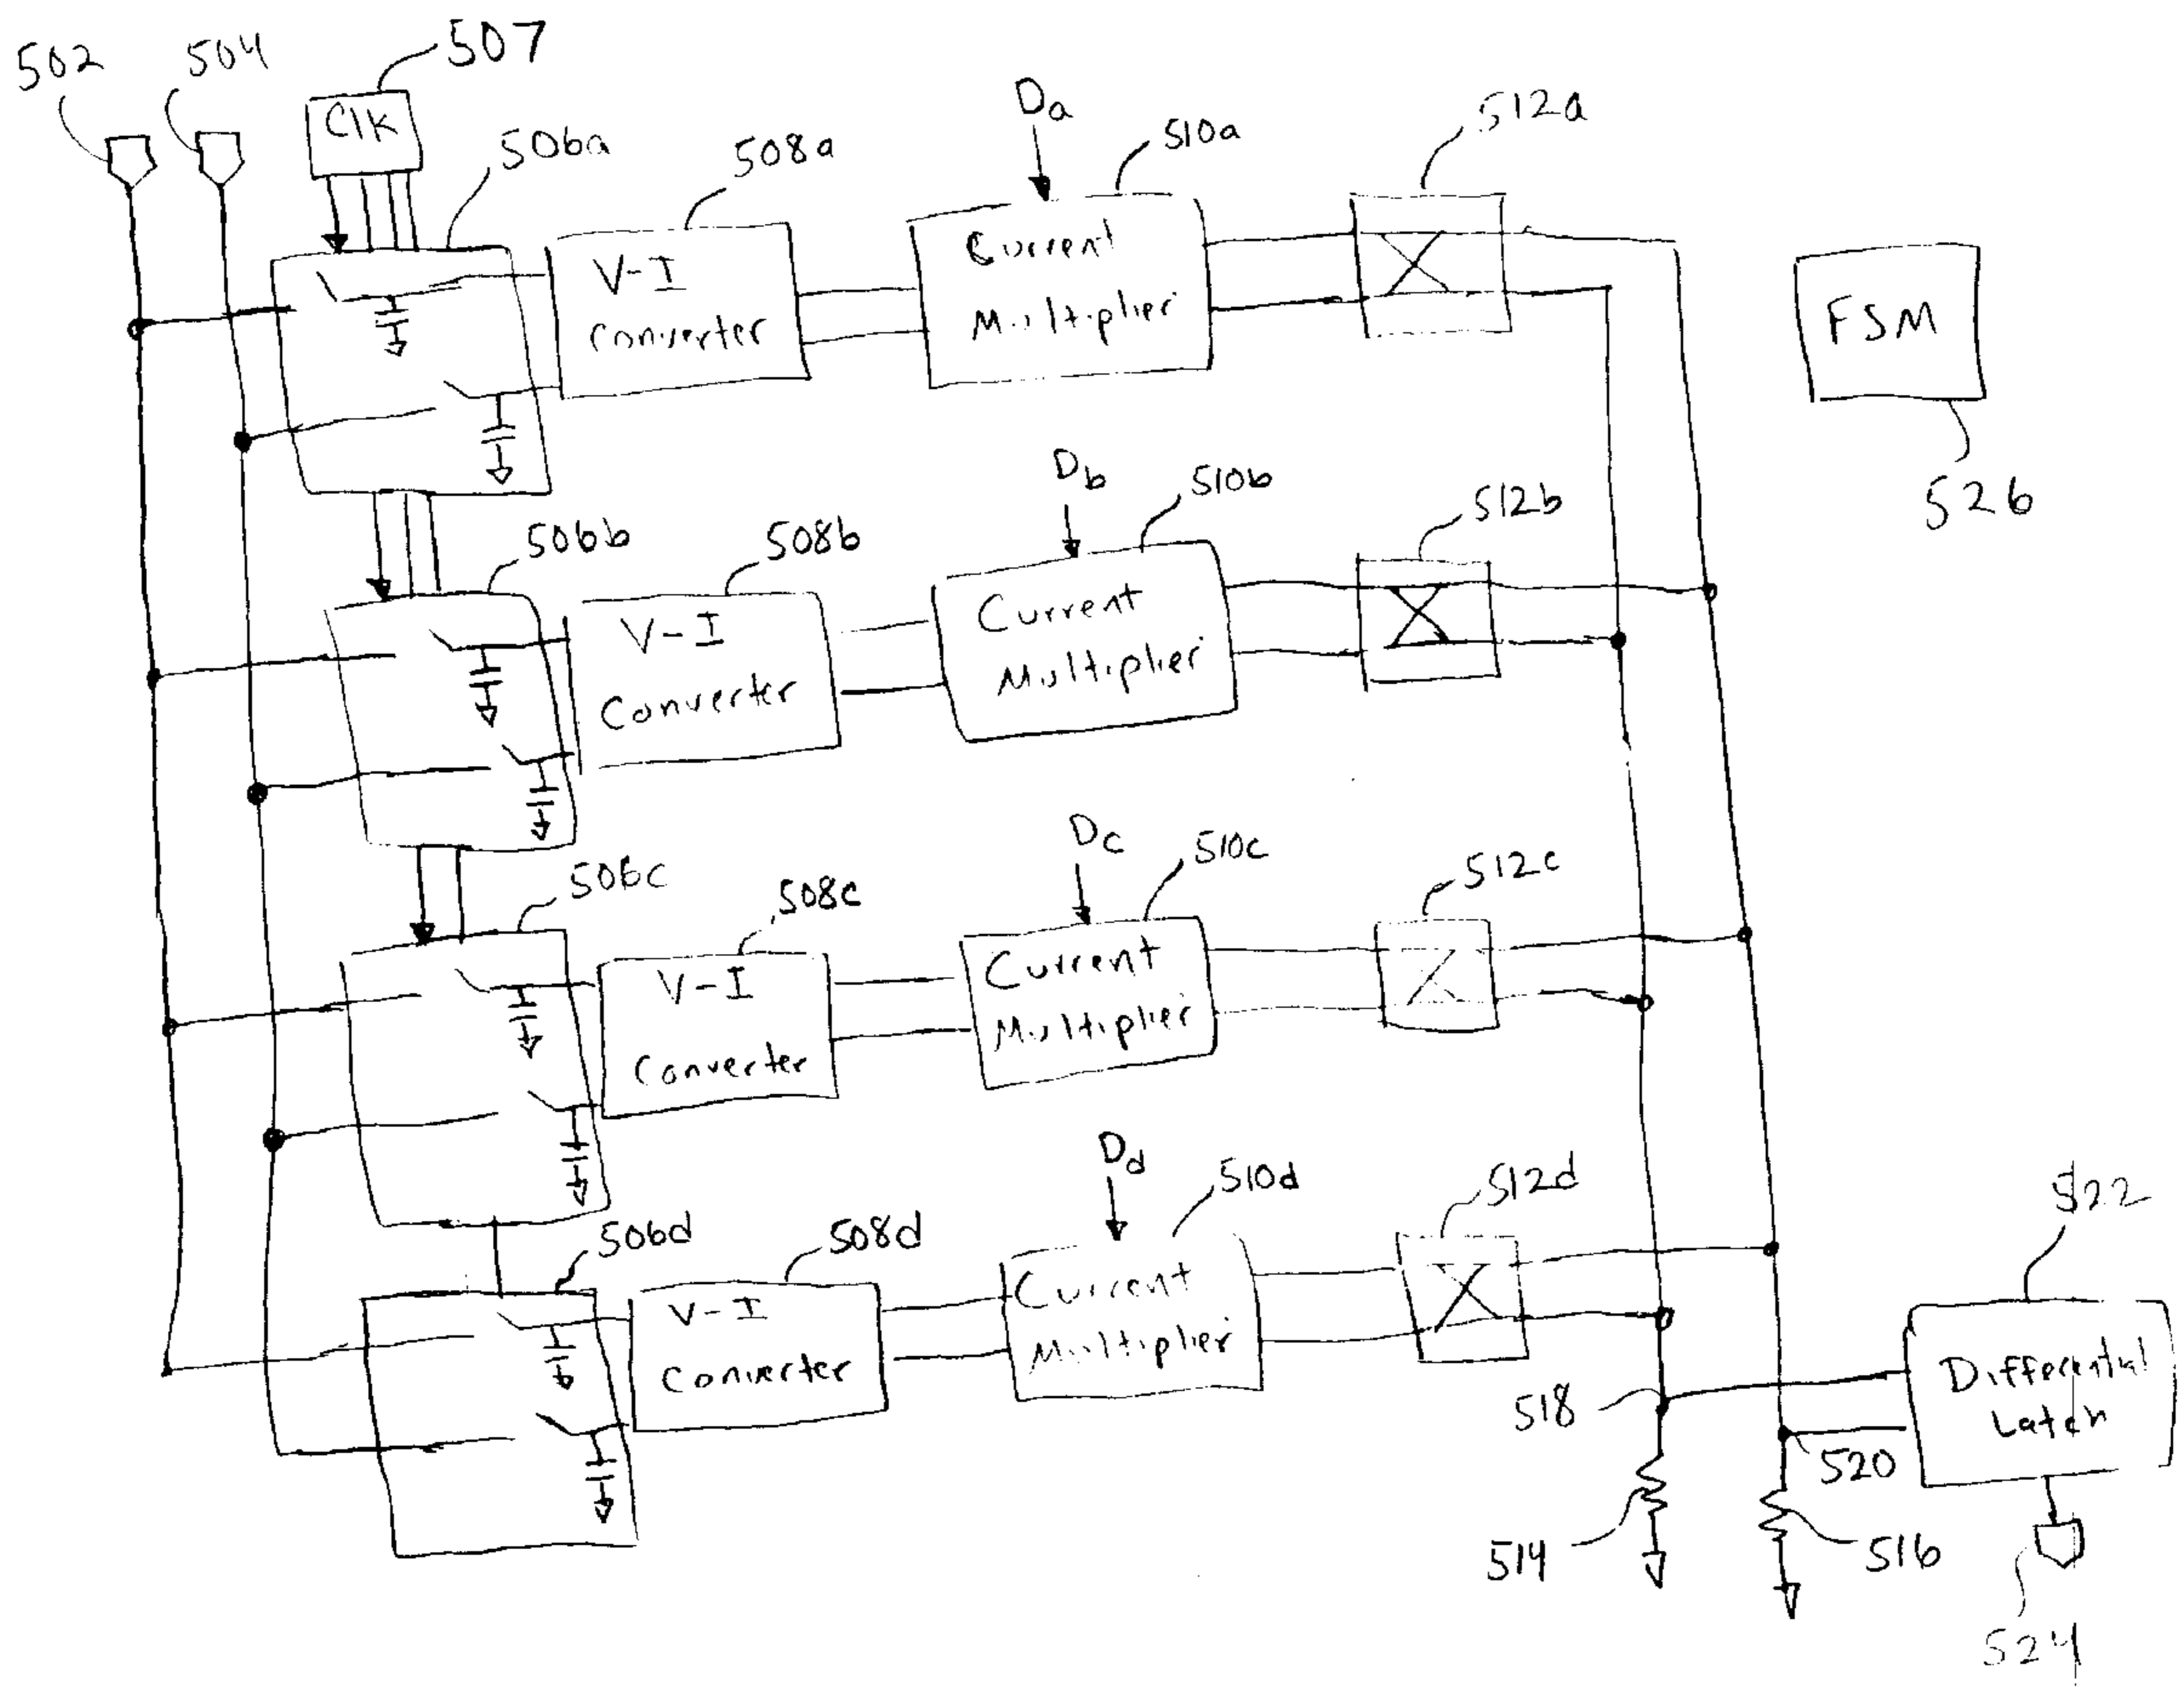 502
504
507
Clk
506a
508a
Da
510a
512a
V-I
Converter
Current
Multiplier
FSM
526
506b
508b
Db
510b
512b
V-I
Converter
Current
Multiplier
506c
508c
Dc
510c
512c
V-I
Converter
Current
Multiplier
506d
508d
Dd
510d
512d
V-I
Converter
Current
Multiplier
522
Differential
Latch
518
520
514
516
524